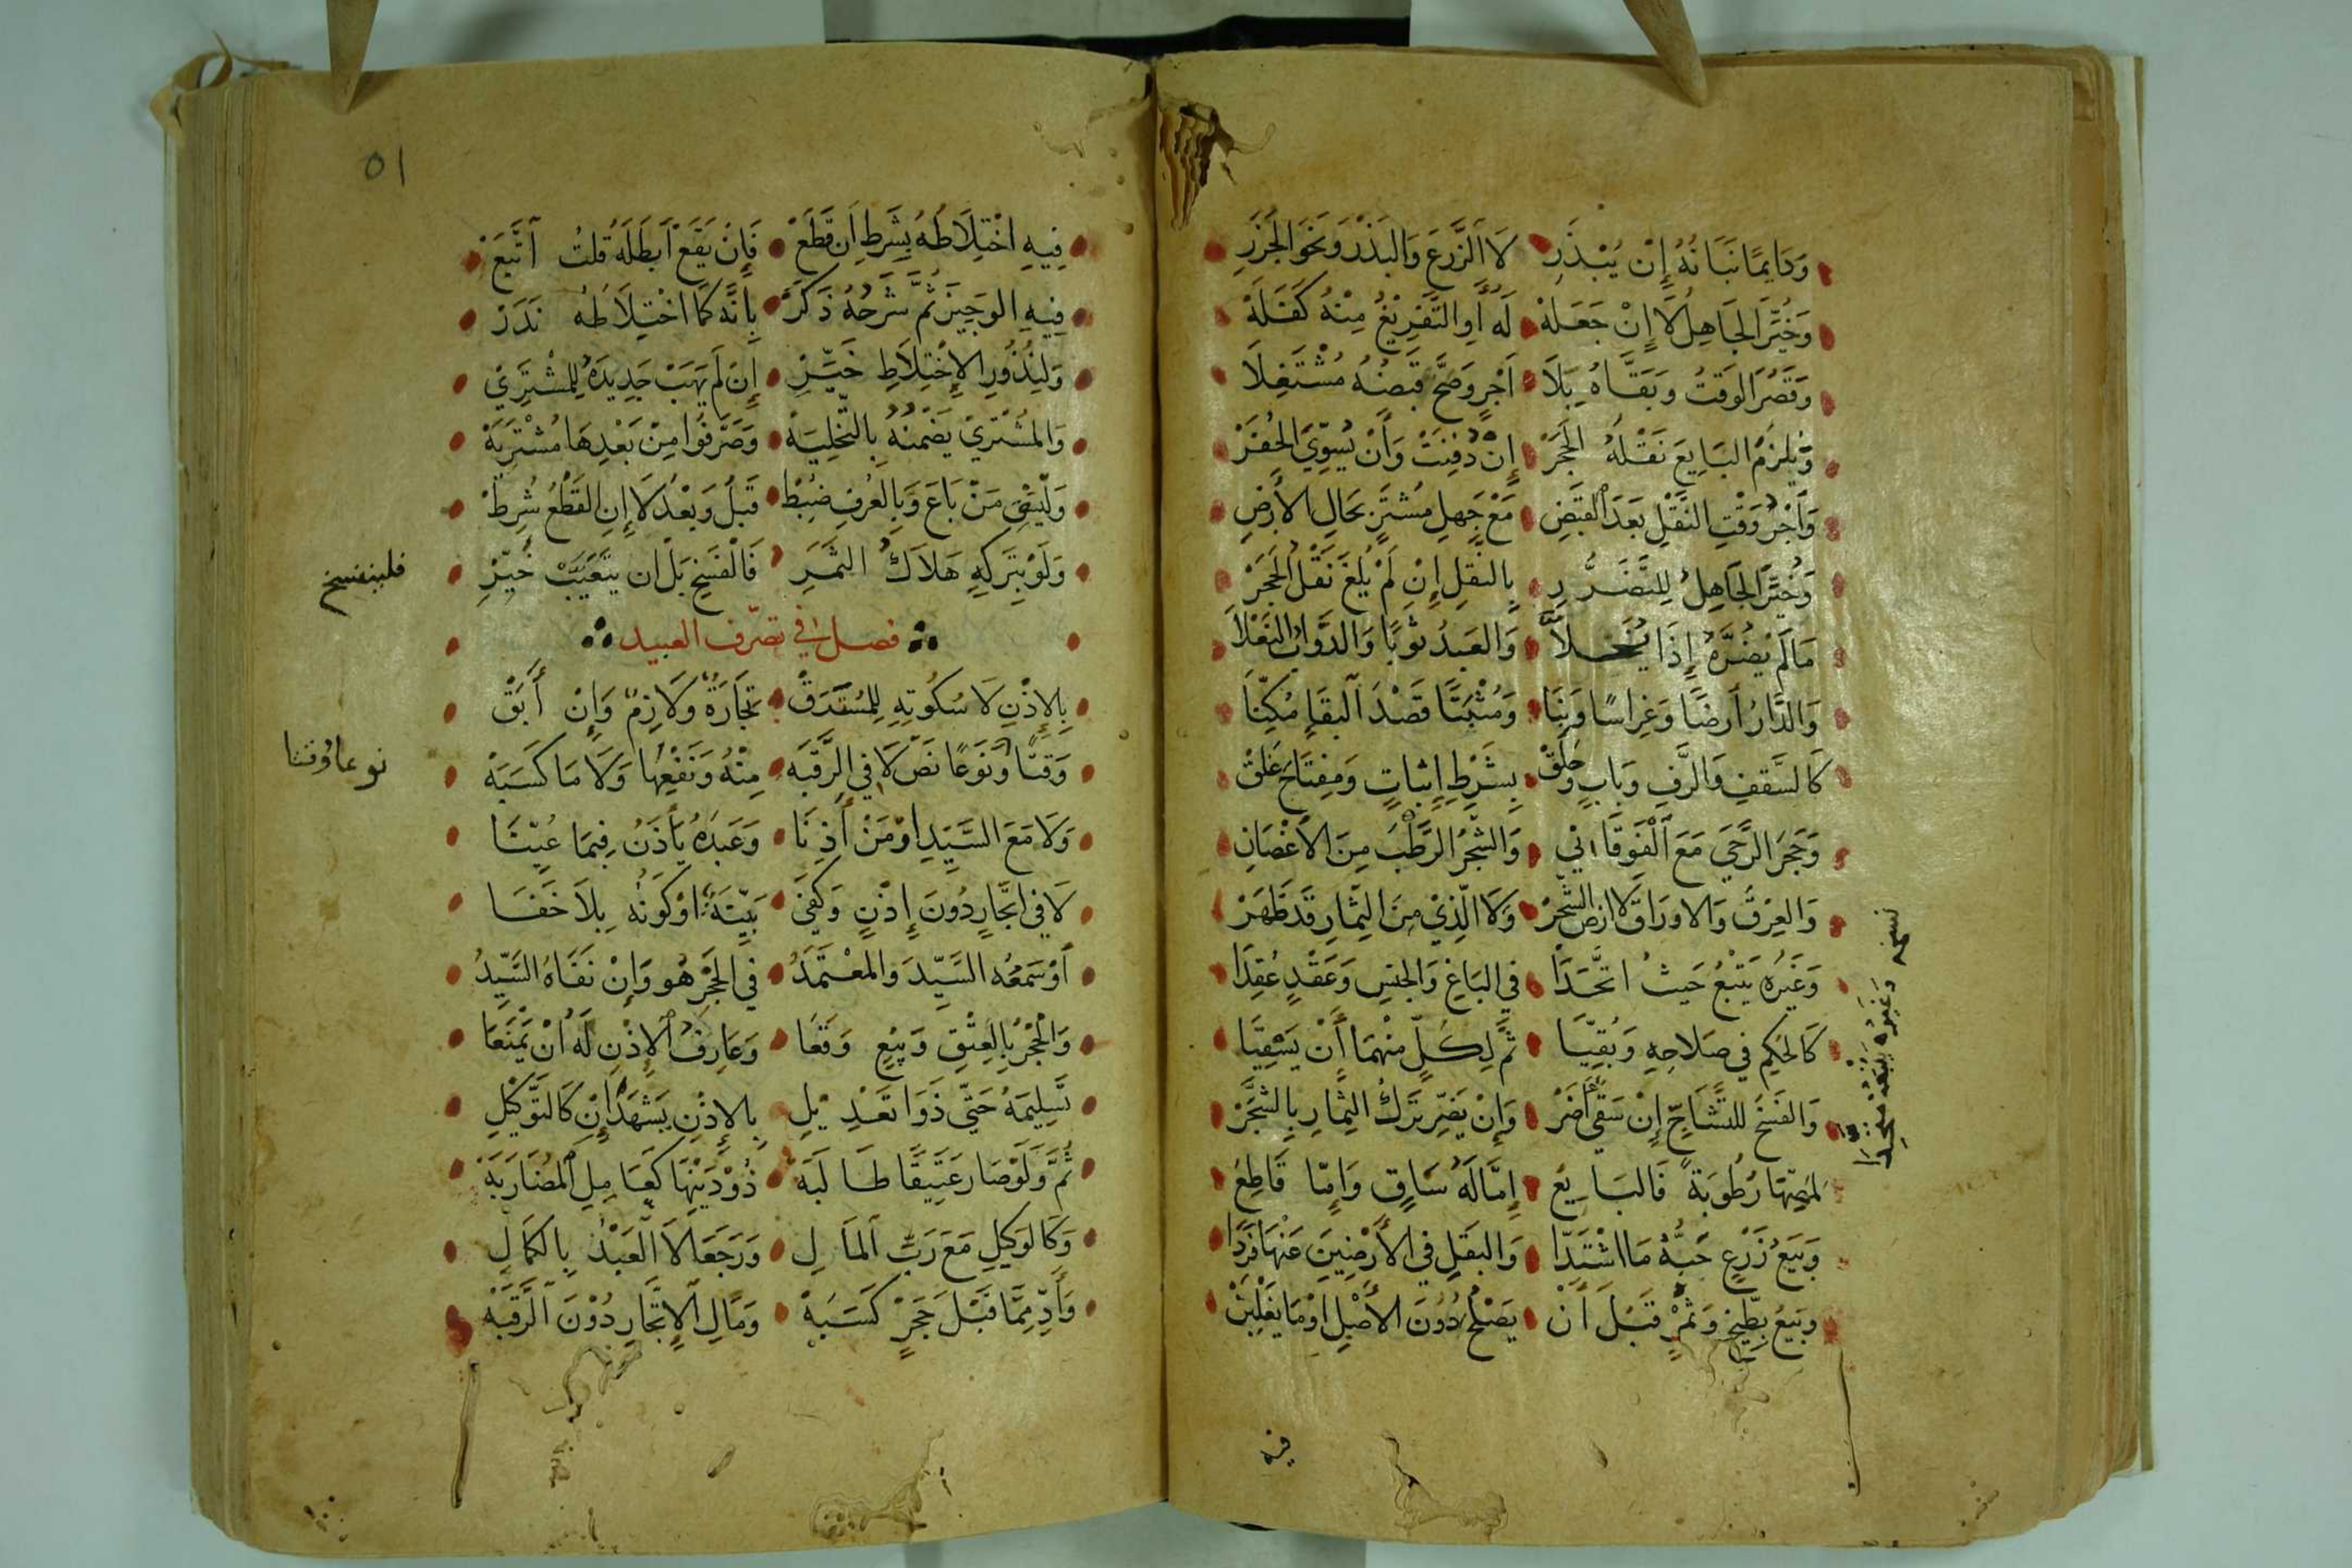 وَدَايِمًا نَبَاتُهُ إِنْ يُبْذَرِ لَا الزَّرعَ وَالبَذْرَ وَنَحْوَ الجَزَرِ
وَخُيِّرَ الجَاهِلُ لَا إِنْ جَعَلَهْ لَهُ أَوِ التَّفْرِيْغُ مِنْهُ كَفَلَهْ
وَقَصُرَ الوَقْتُ وَبَقَّاهُ بِلَا أَجْرٍ وَصَحَّ قَبْضُهُ مُشْتَغِلَا
وَيُلْزَمُ البَايِعُ نَقْلَهُ الحَجَرْ إِنْ دُفِنَتْ وَأَنْ يُسَوِّيَ الحُفَرْ
وَأَجْرُ وَقْتِ النَّقْلِ بَعْدَ القَبْضِ مَعْ جَهْلِ مُشْتَرٍ بِحَالِ الأَرْضِ
وَخُيِّرَ الجَاهِلُ لِلتَّضَرُّرِ بِالنَّقْلِ إِنْ لَمْ يُلْغَ نَقْلُ الحَجَرْ
مَا لَمْ يَضُرَّهُ إِذَا يُخَلَّا وَالعَبْدُ ثَوْبًا وَالدَّوَابُ النَّعْلَا
وَالدَّارُ أَرضًا وَغِرَاسًا وَبِنَا وَمُثْبَتًا قَصْدَ البَقَاءِ مُكِّنَا
كَالسَّقْفِ وَالرَّفِ وَبَابٍ وَحَلَقْ بِشَرْطِ إِثْبَاتٍ وَمِفْتَاحَ غَلَقْ
وَحَجَرَ الرَّحَى مَعَ الْفَوْقَانِي وَالشَّجَرُ الرَّطْبَ مِنَ الأَغْصَانِ
وَالعِرْقَ وَالاورَاقَ لَا ارْضَ الشَّجَرْ وَلَا الَّذِيْ مِنَ الثِّمَارِ قَدْ ظَهَرْ
وَغَيْرُهُ يَتْبَعُ حَيْثُ اتَّحَدَا فِي البَاغِ وَالجِنْسِ وَعَقْدٍ عُقِدَا
كَالحُكْمِ فِي صَلَاحِهِ وَبُقِّيَا ثُمَّ لِكُلٍّ مِنْهُمَا أَنْ يَسْقِيَا
وَالفَسْخُ لِلتَّشَاحِّ إِنْ سَقْيٌ أَضَرْ وَإِنْ يَضِرْ تَرْكُ الثِّمَارِ بِالشَّجَرْ
رُطُوبَةً فَالبَايِعُ إِمَّا لَهُ سَاقٍ وَإِمَّا قَاطِعُ
وَبَيْعُ زَرْعٍ حَبُّهُ مَا اشْتَدَّا وَالبَقْلِ فِي الأَرْضِيْنَ عَنْهَا فَرْدَا
وَبَيْعُ بِطِّيْخٍ وَثَمْرٍ قَبْلَ أَنْ يَصْلُحَ دُوْنَ الأَصْلِ اوْ مَا يَغْلِبَنْ
نسخه وغيره يتبعه متحدا
فيه
٥١
فِيهِ اخْتِلَاطُهُ بِشَرْطِ إِن قَطَعْ فَإِنْ يَقَعْ أَبْطَلَهُ قُلتُ اتَّبَعْ
فِيهِ الوَجِيْزَ ثُمَّ شَرْحُهُ ذَكَرْ بِأَنَّهُ كَمَا اخْتِلَاطُهُ نَدَرْ
وَلِنُذُورِ الإِخْتِلَاطِ خَيِّرِ إِنْ لَمْ يَهَبْ جَدِيْدَهُ لِلْمُشْتَرِيْ
وَالمُشْتَرِيْ يَضْمَنُهُ بِالتَّخْلِيَهْ وَصَرَّفُوا مِنْ بَعْدِهَا مُشْتَرِيَهْ
وَلْيَسْقِ مَنْ بَاعَ وَبِالعُرْفِ ضُبِطْ قَبْلُ وَبَعْدُ لَا إِنِ القَطْعُ شُرِطْ
وَلَوْ بِتَركِهِ هَلَاكُ الثَّمَرِ فَالْفَسْخِ بَلْ ان يَتَعَيَّبْ خُيِّرِ
فلينفسخ
فصل في تصرف العبيد
بِالإِذْنِ لَا سُكُوتِهِ لِلمُسْتَرَقْ تِجَارَةٌ وَلَازِمٌ وَإِنْ أَبَقْ
وَقْتًا وَنَوعًا نَصَّ لَا فِي الرَّقَبَهْ مِنْهُ وَنَفْعِهَا وَلَا مَا كَسَبَهْ
نوعا وقتا
وَلَا مَعَ السَّيِّدِ اوْ مَنْ أَذِنَا وَعَبْدَهُ يَأْذَنُ فِيمَا عُيِّنَا
لَا فِي اتِّجَارٍ دُونَ إِذْنٍ وَكَفَى بَيِّنَةٌ اوْ كَونُهُ بِلَا خَفَا
أَوْ سَمْعُهُ السَّيِّدَ وَالمُعْتَمَدُ فِي الحَجْرِ هُو وَإِنْ نَفَاهُ السَّيِّدُ
وَالْحَجْرُ بِالعِتْقِ وَبَيْعٍ وَقَعَا وَعَارِفُ الإِذْنِ لَهُ أَنْ يَمْنَعَا
تَسلِيمَهُ حَتَّى ذَوَا تَعْدِيْلِ بِالإِذْنِ يَشْهَدَانِ كَالتَّوْكِيْلِ
ثُمَّ وَلَوْ صَارَ عَتِيْقًا طَالَبَهْ ذُوْ دَيْنِهَا كَعَامِلِ المُضَارَبَهْ
وَكَالوَكِيْلِ مَعَ رَبِّ المَالِ وَرَجَعَا لَا العَبْدُ بِالكَمَالِ
وَأَدِّ مِمَّا قَبْلَ حَجْرٍ كَسَبَهْ وَمَالِ الإِتِّجَارِ دُوْنَ الرَّقَبَهْ